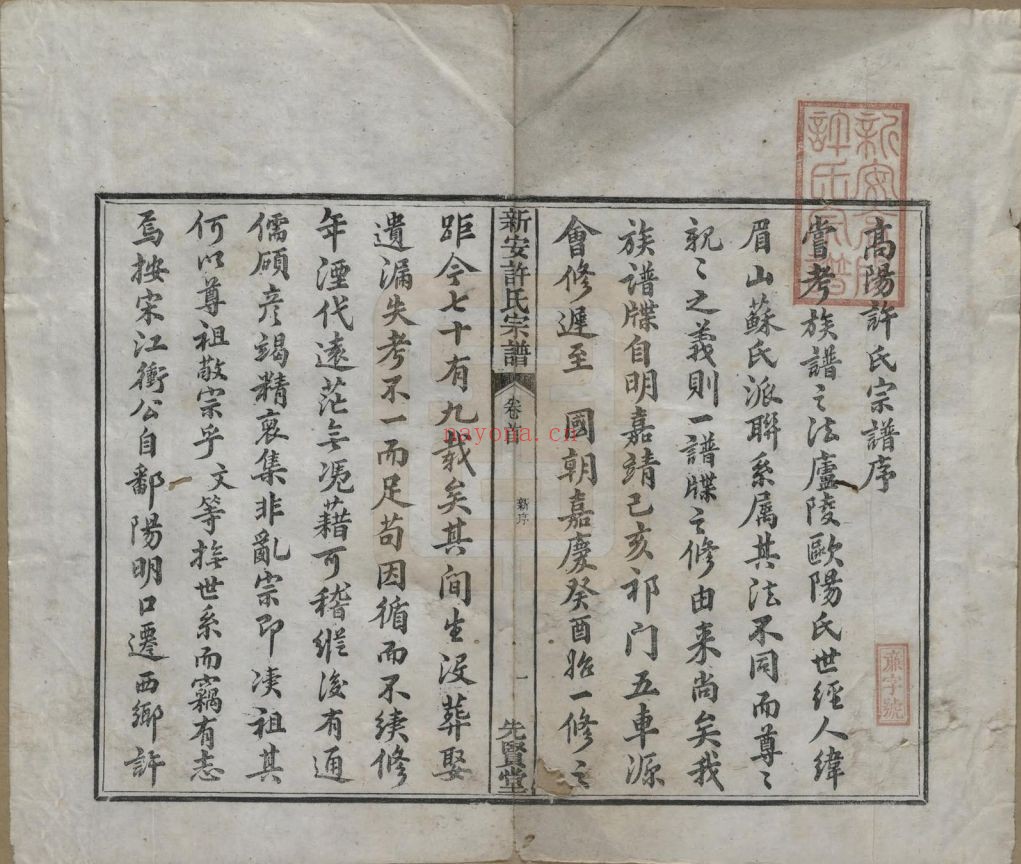 高陽許氏宗譜序
嘗考族譜之法廬陵歐陽氏世經人緯
眉山蘇氏派聯系属其法不同而尊〻
親〻之義則一譜牒之修由来尚矣我
族譜牒自明嘉靖己亥祁门五車源
會修遲至 國朝嘉慶癸酉始一修之
新安許氏宗譜
卷首
新序
一
先賢堂
距今七十有九載矣其间生没葬娶
遺漏失考不一而足苟因循而不续修
年湮代遠茫无凴藉可稽縱後有通
儒碩彦竭精裒集非亂宗即凟祖其
何以尊祖敬宗乎文等按世系而竊有志
焉按宋江衝公自鄱陽明口遷西鄉許
新安
許氏宗譜
廉字號
nayona.cn